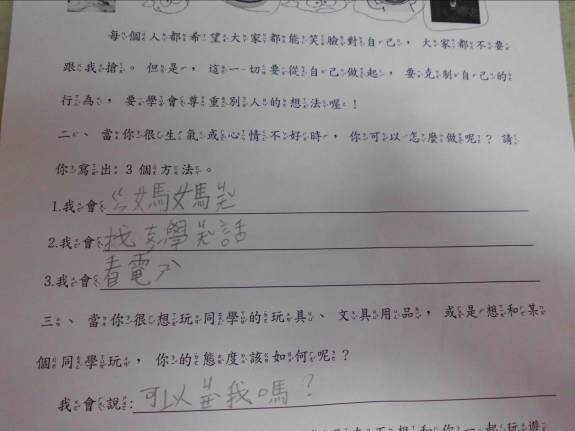 每個人都希望大家都能笑臉對自己，大家都不要
跟我搶。但是，這一切要從自己做起，要克制自己的
行為，要學會尊重別人的想法喔！
二、當你很生氣或心情不好時，你可以怎麼做呢？請
你寫出 3 個方法。
1.我會 媽媽
2.我會找 學 話
3.我會看電
三、當你很想玩同學的玩具、文具用品，或是想和某
個同學玩，你的態度該如何呢？
我會說:可以 我嗎?
不想和你一起玩遊